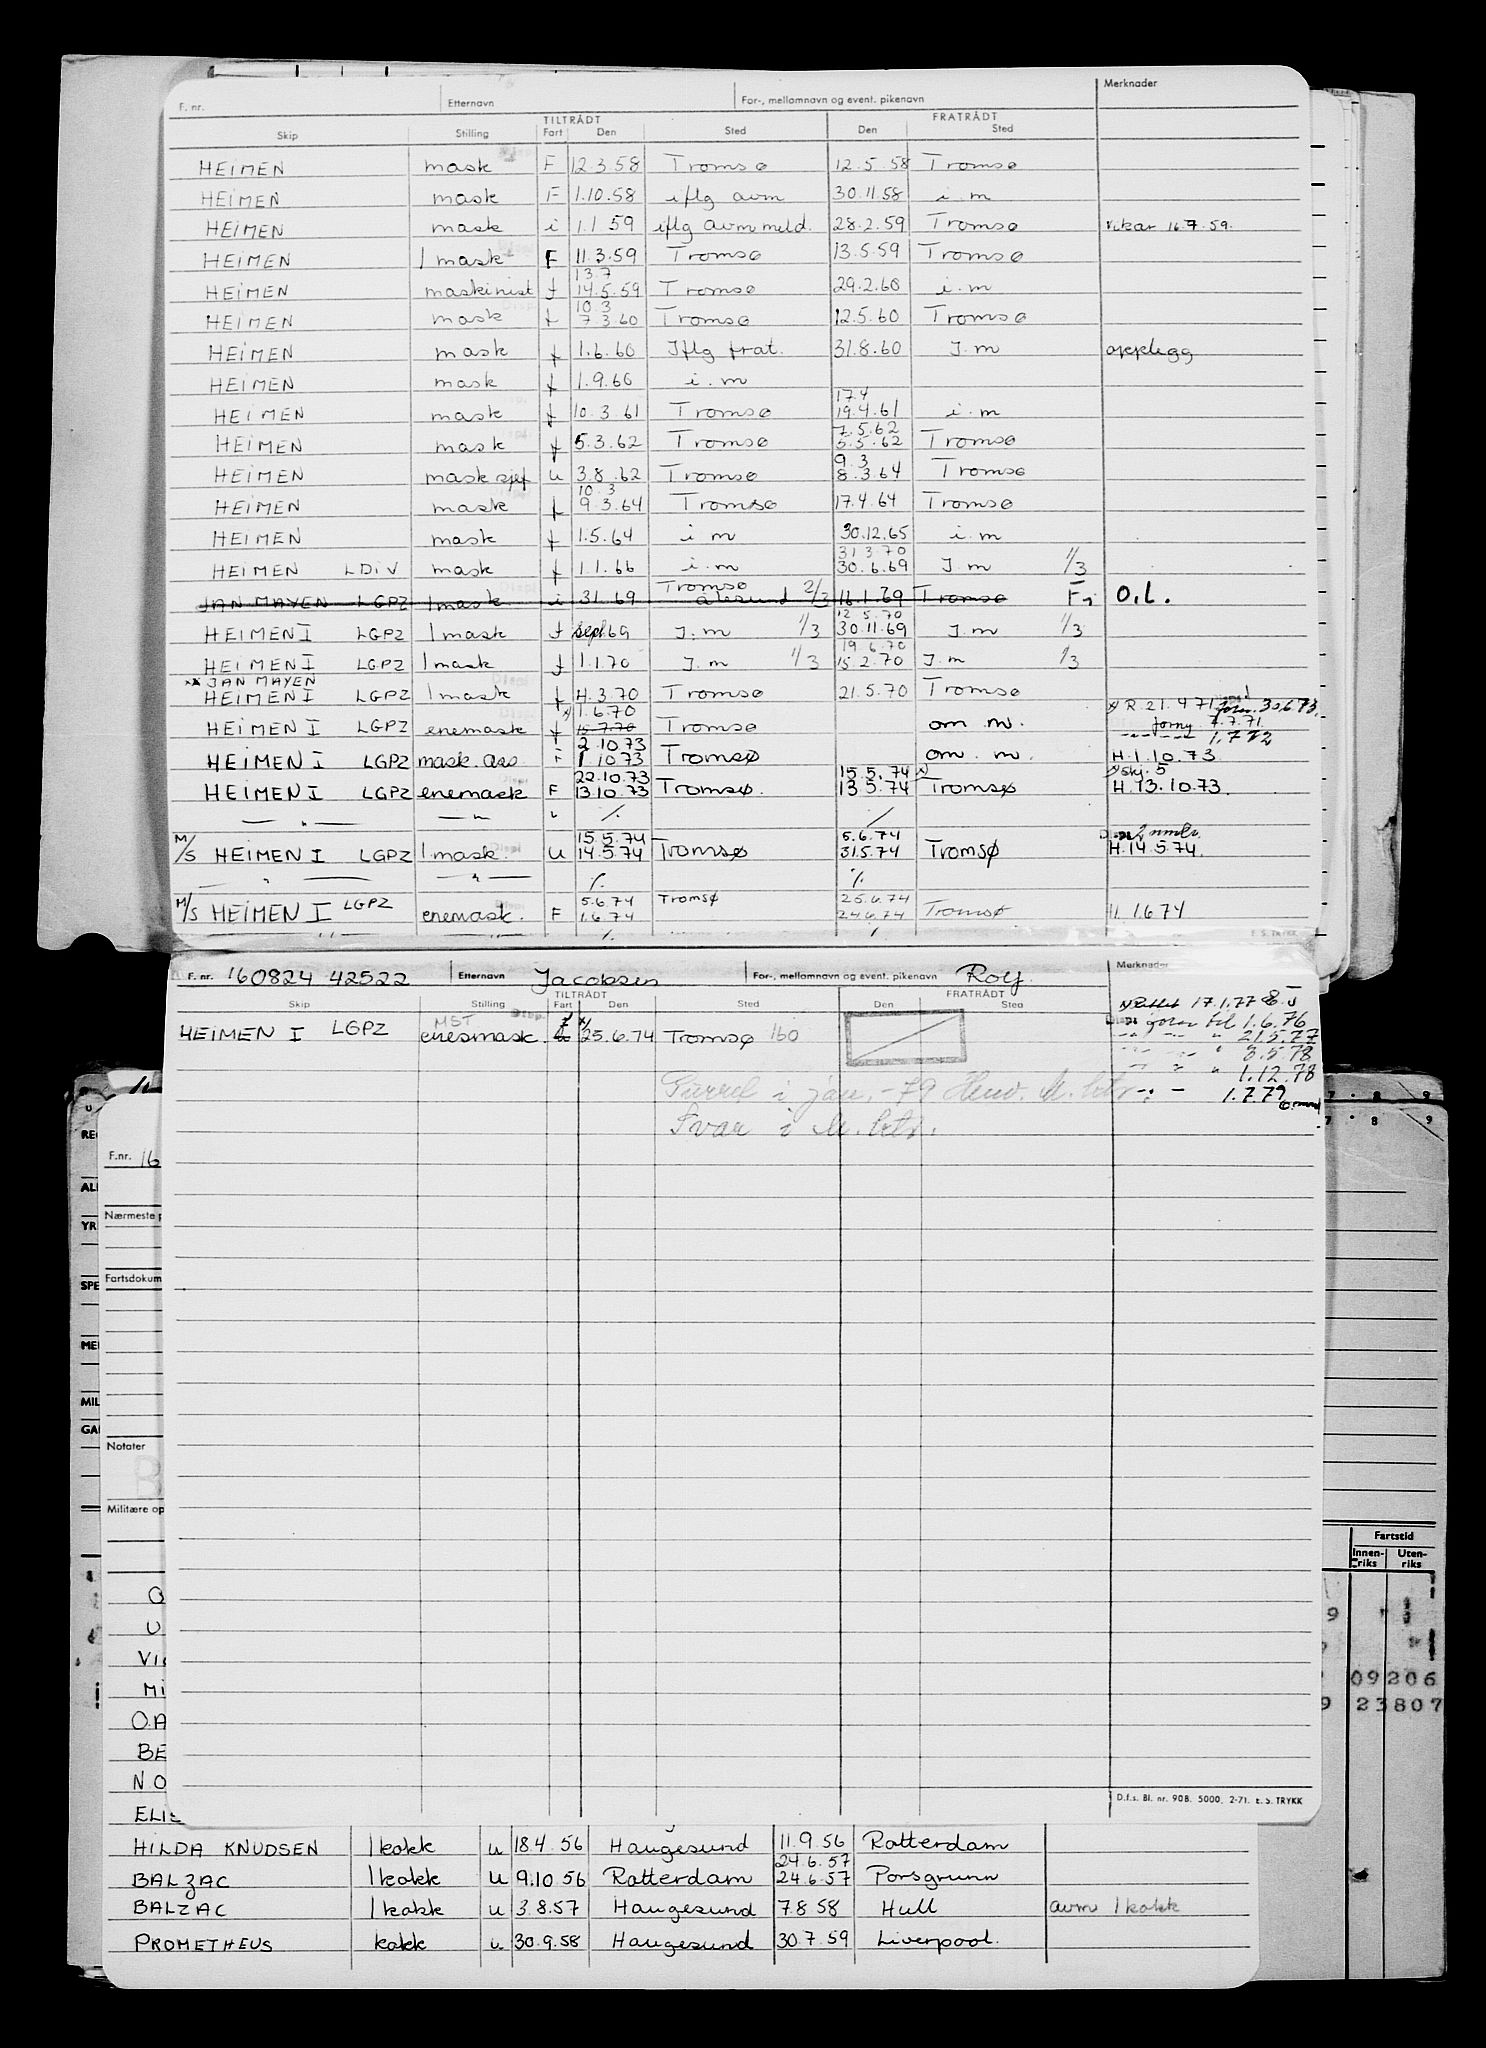 F. nr. Etternavn For-, mellomnavn og event. pikenavn Merknader
TILTRÅDT FRATRÅDT
Skip Stilling Fart Den Sted Den Sted
HEIMEN mask F 12.3.58 Tromsø 12.5.58 Tromsø
HEIMEN mask F 1.10.58 iflg avm 30.11.58 i.m
HEIMEN mask i 1.1 59 iflg avm meld. 28.2.59 Tromsø Vikar 16.7.59.
HEIMEN 1 mask F 11.3.59 Tromsø 13.5.59 Tromsø
13.7
HEIMEN maskinist f 14.5.59 Tromsø 29.2.60 i.m
10.3
HEIMEN mask f 7.3.60 Tromsø 12.5.60 Tromsø
HEIMEN mask f 1.6.60 Iflg frat. 31.8.60 I.m opplegg
HEIMEN mask f 1.9.60 i.m
17.4
HEIMEN mask f 10.3.61 Tromsø 19.4.61 i.m
7.5.62
HEIMEN mask f 5.3.62 Tromsø 5.5.62 Tromsø
9.3
HEIMEN mask sjef u 3.8.62 Tromsø 8.3.64 Tromsø
10.3
HEIMEN mask f 9.3.64 Tromsø 17.4.64 Tromsø
HEIMEN mask f 1.5.64 i.m 30.12.65 i.m
31 3.70
HEIMEN LDIV mask f 1.1.66 i.m 30.6.69 I.m 1/3
Tromsø
JAN MAYEN LGPZ 1 mask i 31.69 ålesund 2/3 16.1.69 Tromsø F, O.L.
12 5.70
HEIMEN I LGPZ 1 mask f sept.69 I.m 1/3 30.11.69 I.m 1/3
19 6.70
HEIMEN I LGPZ 1 mask f 1.1.70 I.m 1/3 15.2.70 I.m 1/3
JAN MAYEN
HEIMEN I LGPZ 1 mask f 4.3.70 Tromsø 21.5.70 Tromsø
x) 1.6.70 x) R.21.4 71 forn. 30.6.73.
HEIMEN I LGPZ enemask f Tromsø om m. forny 7.7.71.
2.10.73 1.7 72
HEIMEN I LGPZ mask. ass F 1.10 73 Tromsø om. m. H.1.10.73
22.10.73 15.5.74 x) x) skj. 5
HEIMEN I LGPZ enemask F 13.10.73 Tromsø. 13.5.74 Tromsø H.13.10.73.
— " — — " — " ٪ ٪
15.5.74 5.6.74
M/S HEIMEN I LGPZ 1 mask. U 14.5.74 Tromsø 31.5.74 Tromsø H.14.5.74.
— " — — " — ٪ ٪
5.6.74 Tromsø 25.6.74
M/S HEIMEN I LGPZ enemask. F 1.6.74 24.6.74 Tromsø H 1.6 74
F. nr. 160824 42522 Etternavn Jacobsen For-, mellomnavn og event. pikenavn Rolf Merknader
TILTRÅDT FRATRÅDT
Skip Stilling Fart Den Sted Den Sted
MST
HEIMEN I LGPZ enesmask. f x) 25.6.74 Tromsø 160
17.1.77
Disp. forn til 1.6.76
" 21.5.77
" 3.5.78
" 1.12.78
Purret i jan. -79 Henv. M. 1.7.79
Svar i M.
F.nr. 16
Nærmeste p
Fartsdokum
Notater
Militære op
REG
ALI
YR
SPE
MEI
MIL
GAI
7 8 9
Fartstid
Innen-riks Uten-riks
09206
23807
D.f.s. Bl. nr. 90B. 5000. 2-71. E. S. TRYKK
O
U
VI
MI
OA
BE
NO
ELIS
HILDA KNUDSEN 1 kokk u 18.4.56 Haugesund 11.9.56 Rotterdam
24.6.57
BALZAC 1 kokk u 9.10 56 Rotterdam 24.6.57 Porsgrunn
BALZAC 1 kokk u 3.8.57 Haugesund 7.8 58 Hull avm 1 kokk
PROMETHEUS kokk u 30.9.58 Haugesund 30.7.59 Liverpool.